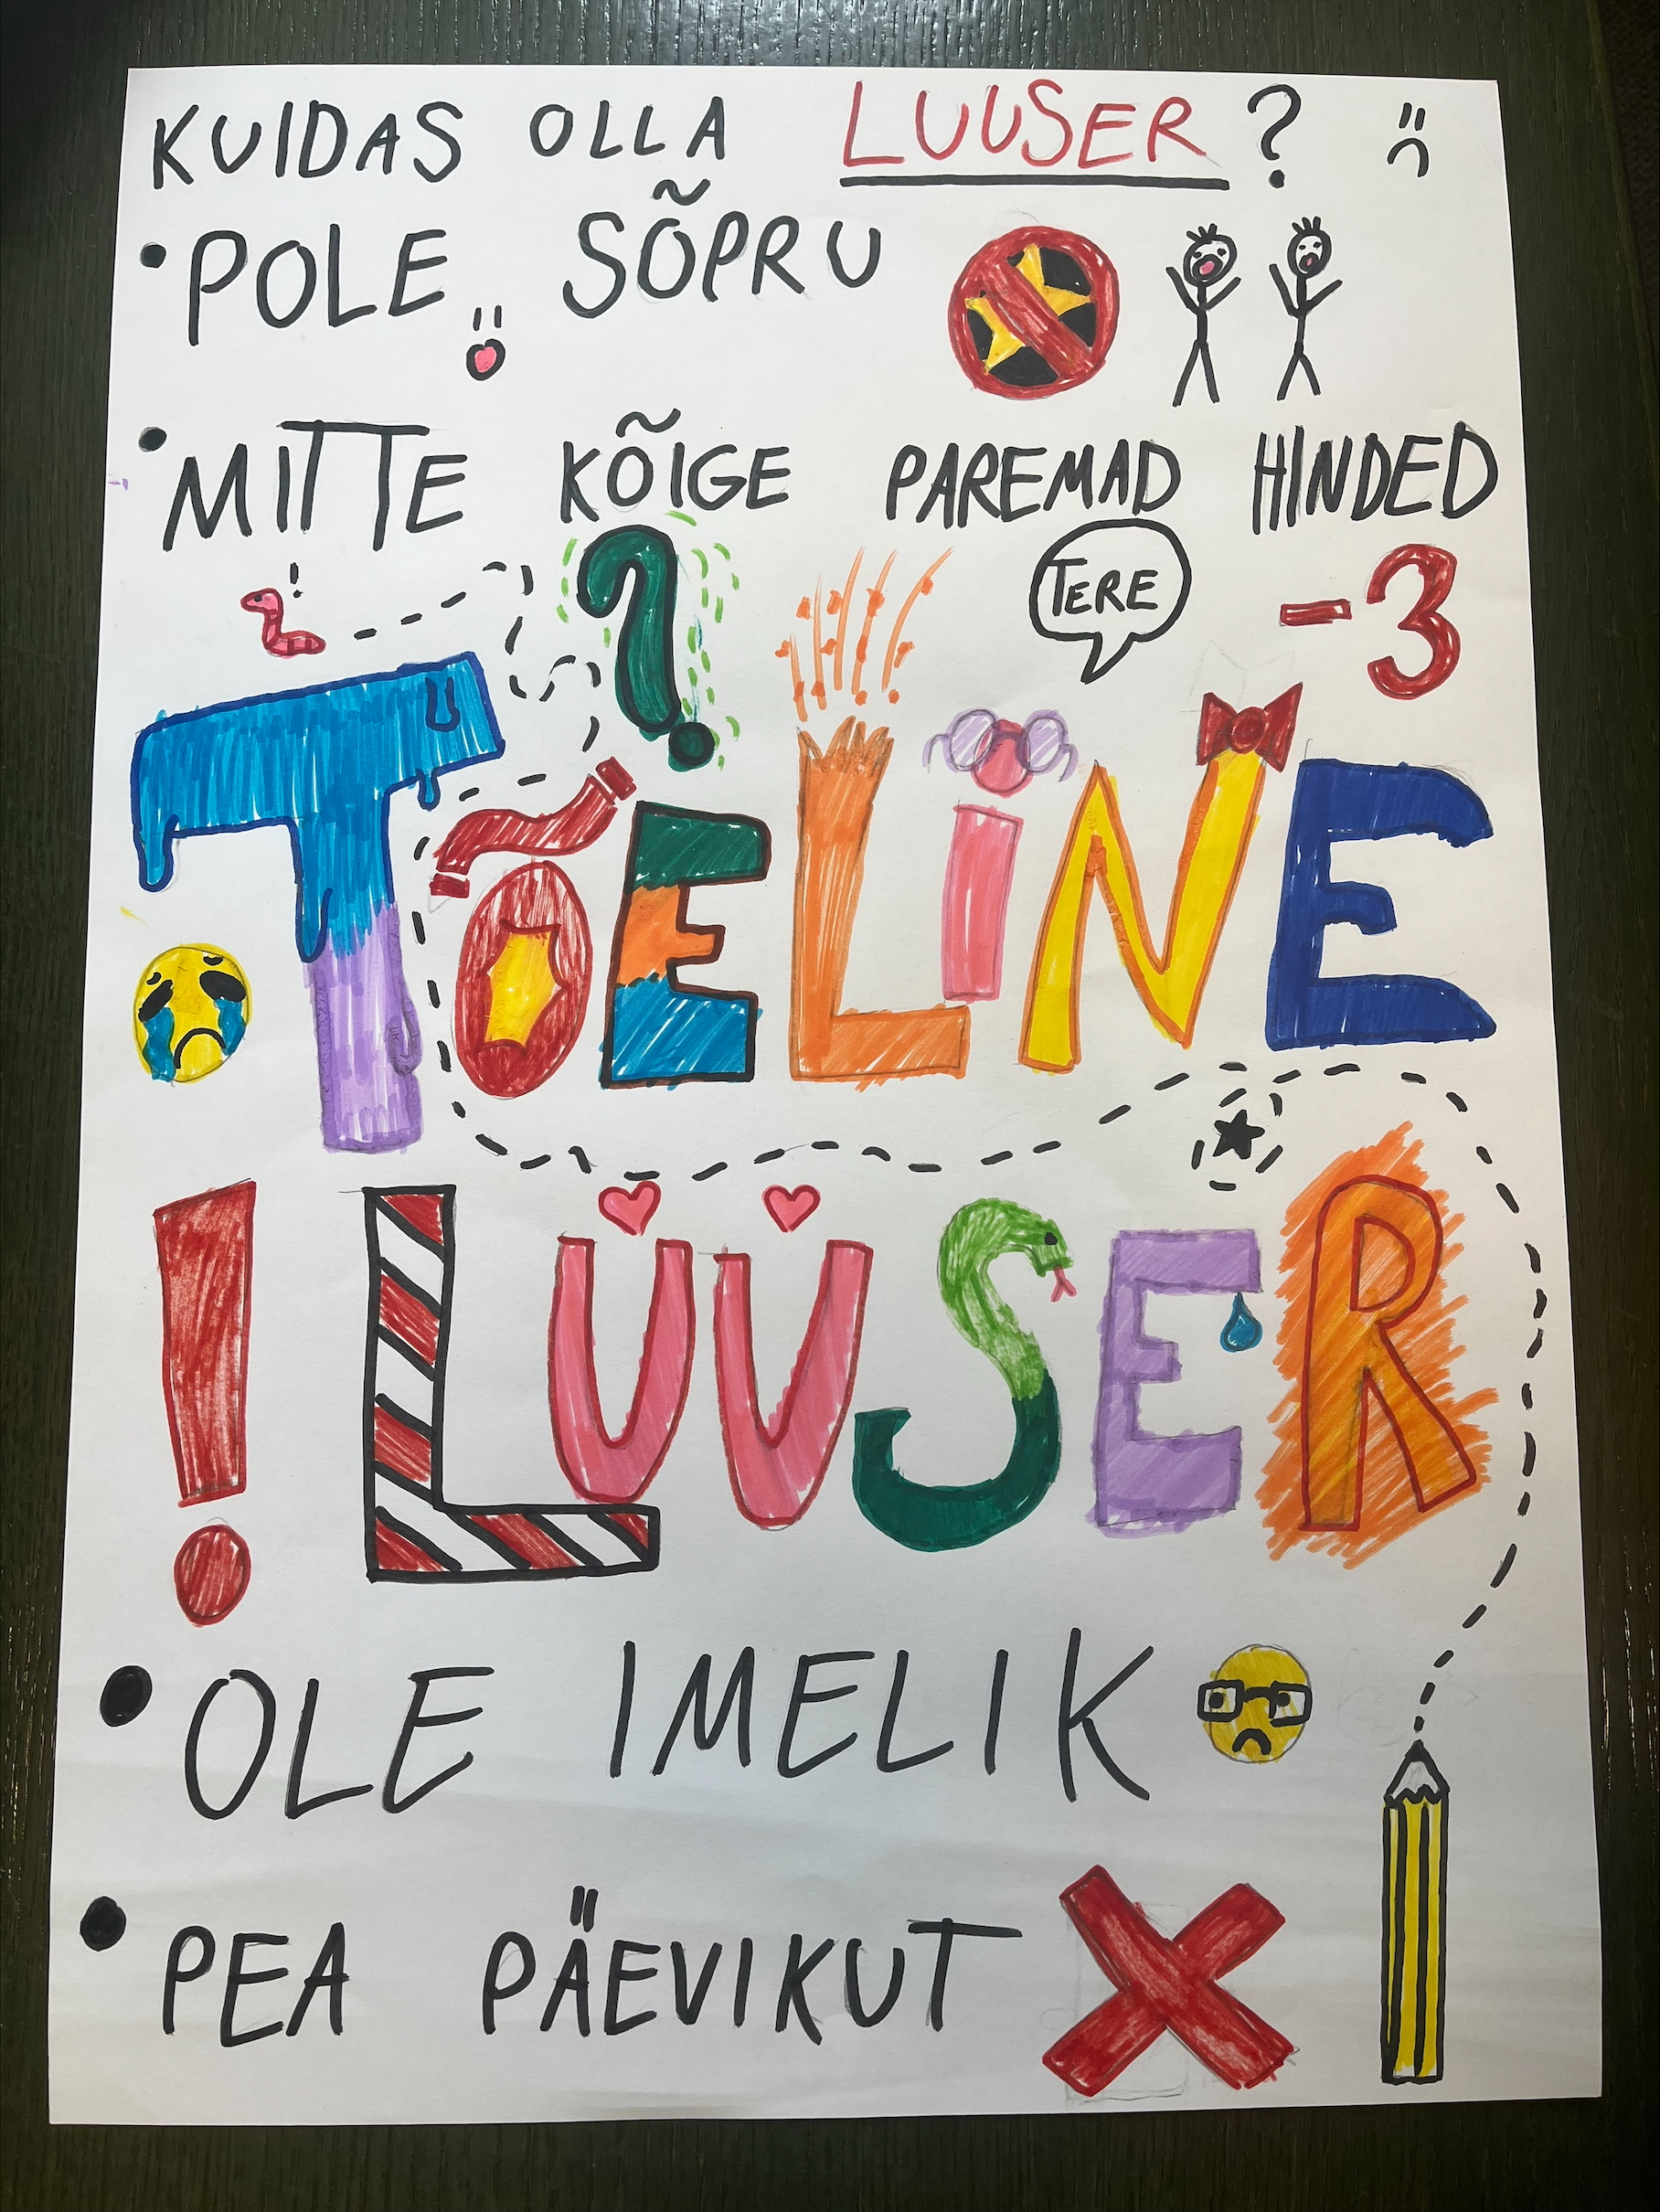 KUIDAS OLLA LUUSER?
• POLE SÕPRU
• MITTE KÕIGE PAREMAD HINDED
?
TERE
-3
TÕELINE
! LÜÜSER
• OLE IMELIK
• PEA PÄEVIKUT